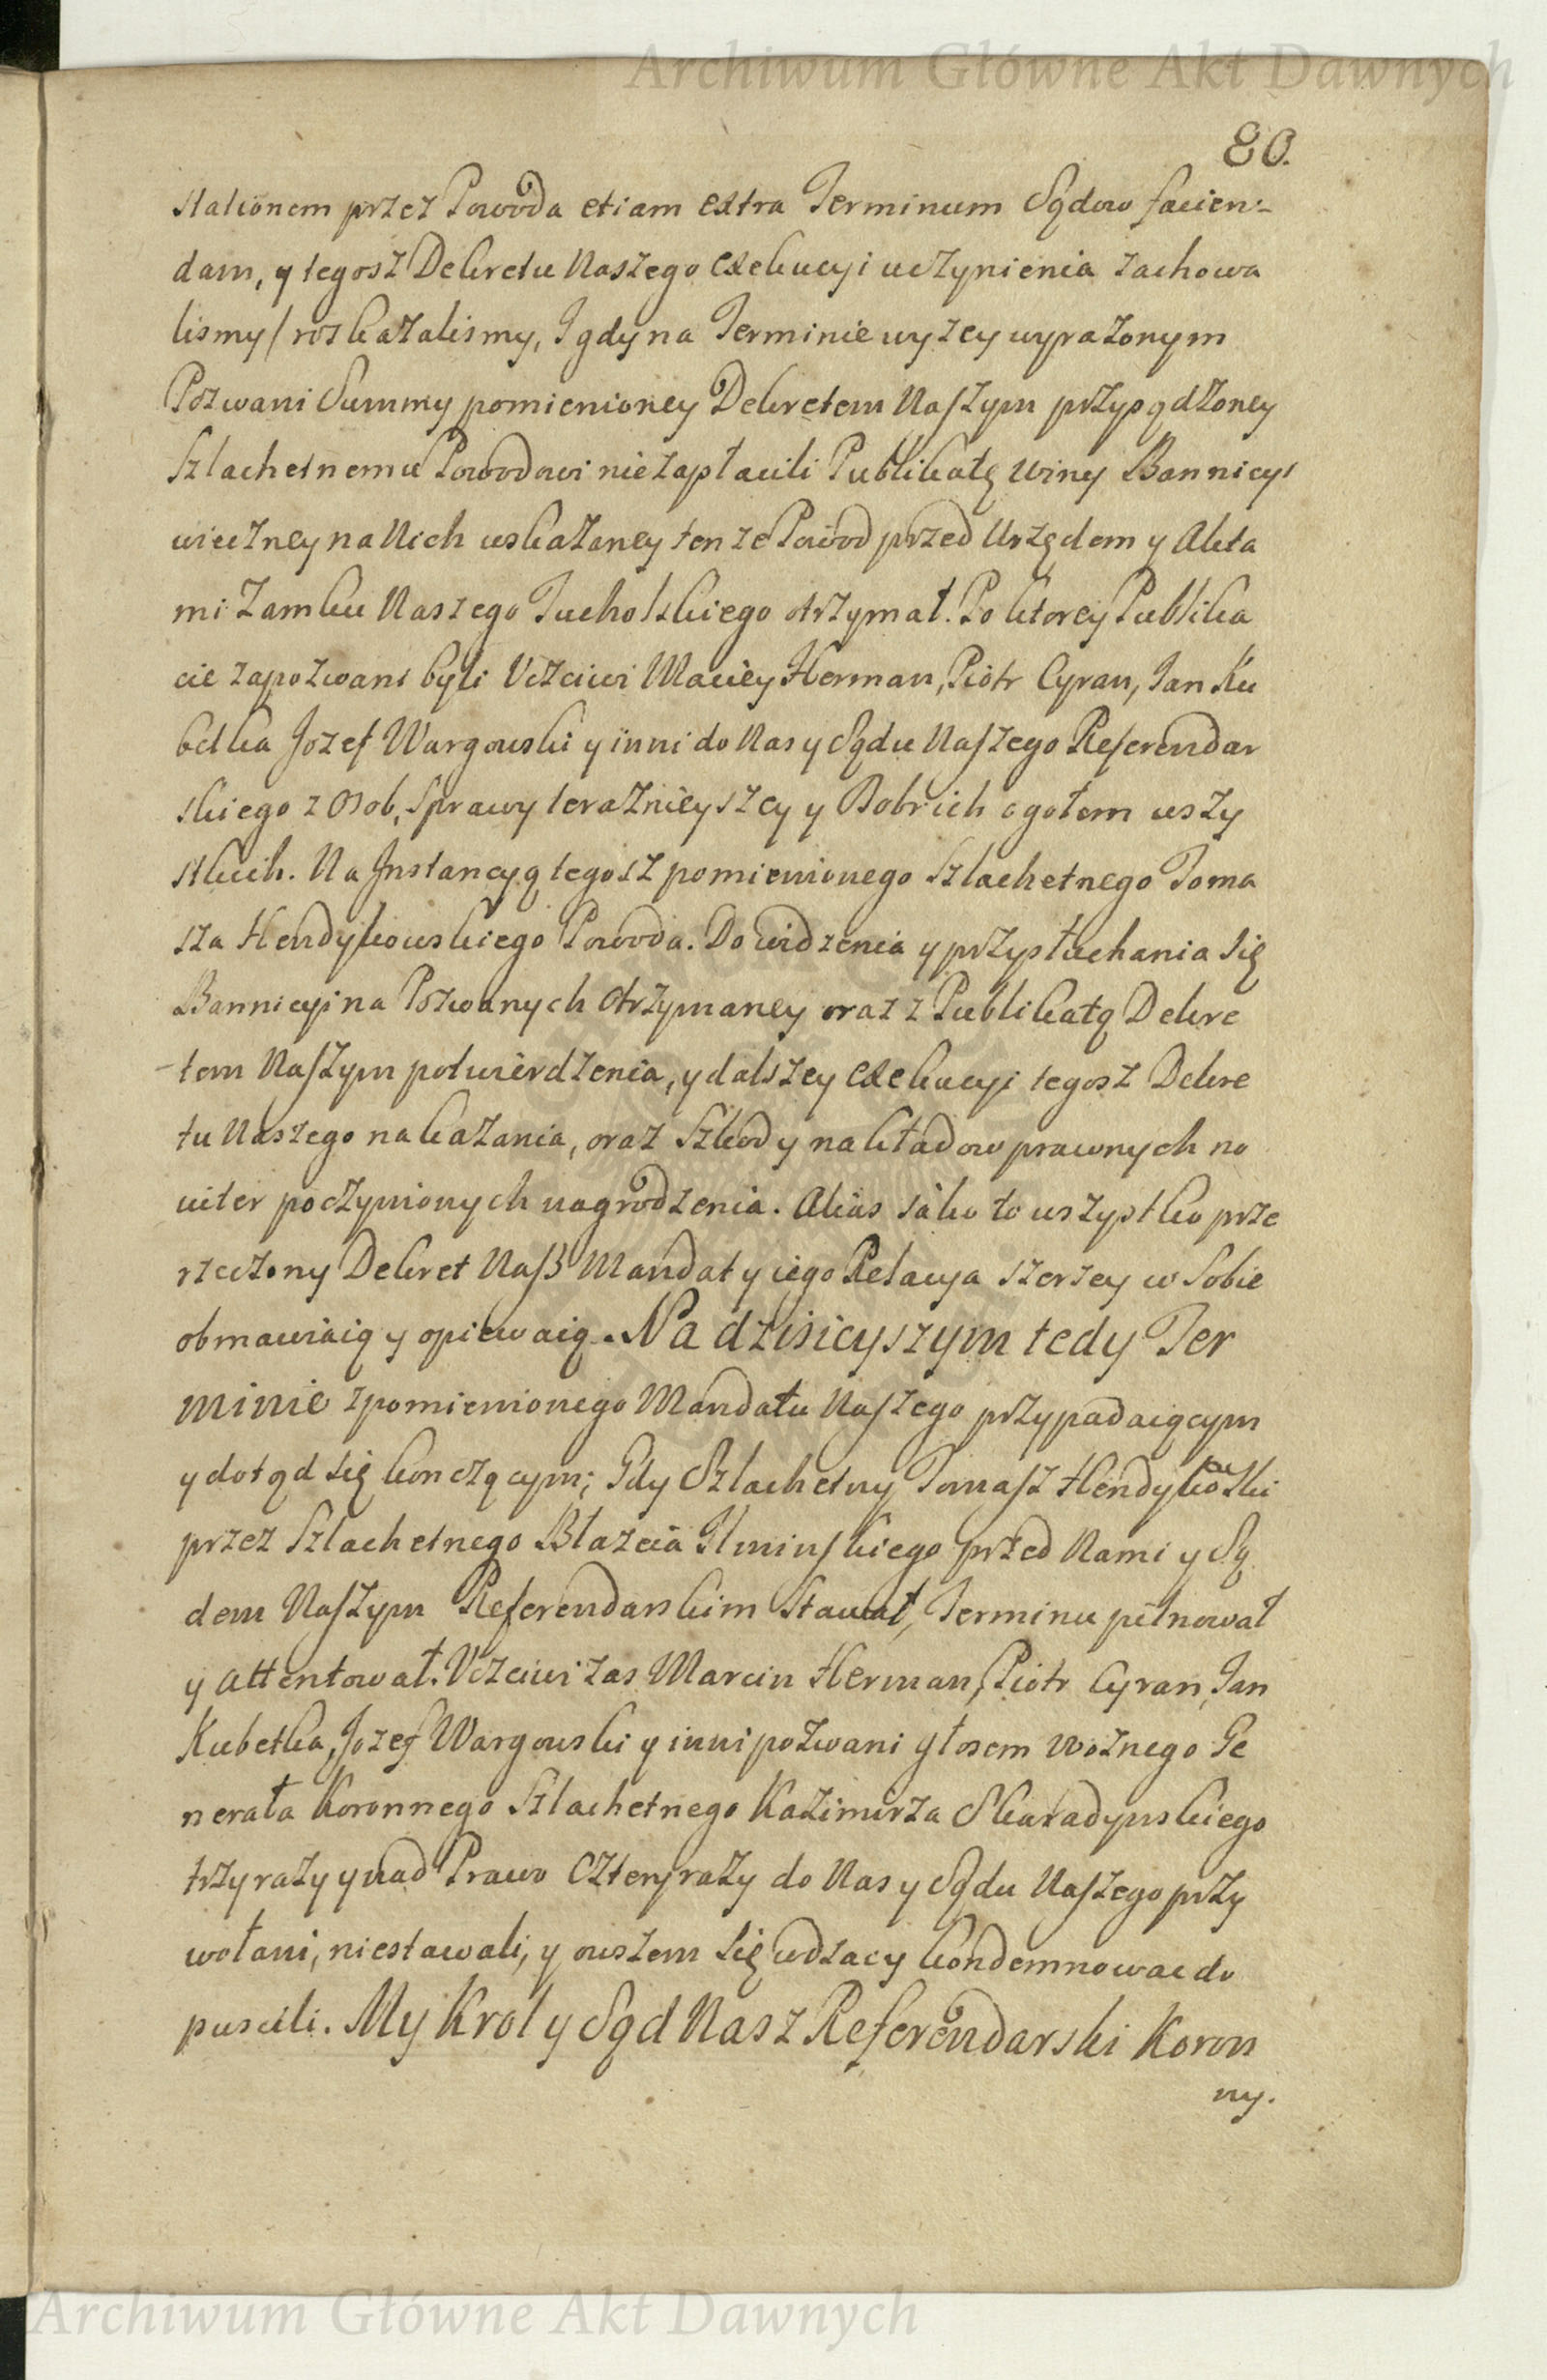 Archiwum Główne Akt Dawnych
80.
stationem przez Powoda etiam extra Terminum Sądow facien:-
dam, y tegosz Dekretu Naszego Exekucyi uczynienia zachowa
lismy / roskazalismy, I gdy na Terminie wyzey wyrazonym
Pozwani Summy pomienioney Dekretem Naszym przysądzoney
Szlachetnemu Powodowi nie zapłacili Publikatę winy Bannicyi
wieczney na Nich wskazaney tenze Powod przed Urzędem y Akta
mi Zamku Naszego Tucholskiego otrzymał. Po ktorey Publika
cie zapozwani byli Vczciwi Maciey Herman, Piotr Cyran, Jan Ku
betka Jozef Wargowski y inni do Nas y Sądu Naszego Referendar
skiego z Osob, Sprawy teraznieyszey y Dobr ich ogołem wszy
stkich. Na Instancyą tegosz pomienionego Szlachetnego Toma
sza Hendykowskiego Powoda. Do widzenia y przysłuchania się
Bannicyi na Pozwanych Otrzymaney oraz z Publikatą Dekre
tem Naszym potwierdzenia, y dalszey Exekucyi tegosz Dekre
tu Naszego nakazania, oraz Szkod y nakładow prawnych no
viter poczynionych nagrodzenia. Alias iako to wszystko prze
rzeczony Dekret Nasz Mandat y iego Relacya szerzey w Sobie
obmawiaią y opiewaią. Na dzisieyszym tedy Ter
minie z pomienionego Mandatu Naszego przypadaiącym
y dotąd się konczącym; Gdy Szlachetny Tomasz Hendykowski
przez Szlachetnego Błazeia Ilminskiego przed Nami y Są
dem Naszym Referendarskim Stawał, Terminu pilnował
y attentował. Vczciwi zas Marcin Herman, Piotr Cyran, Jan
Kubetka, Jozef Wargowski y inni pozwani głosem Woznego Ge
nerała Koronnego Szlachetnego Kazimirza Skaradynskiego
trzy razy y nad Prawo Cztery razy do Nas y Sądu Naszego przy
wołani, niestawali, y owszem się wdzacy kondemnowac do
puscili. My Krol y Sąd Nasz Referendarski Koron
ny.
Archiwum Główne Akt Dawnych